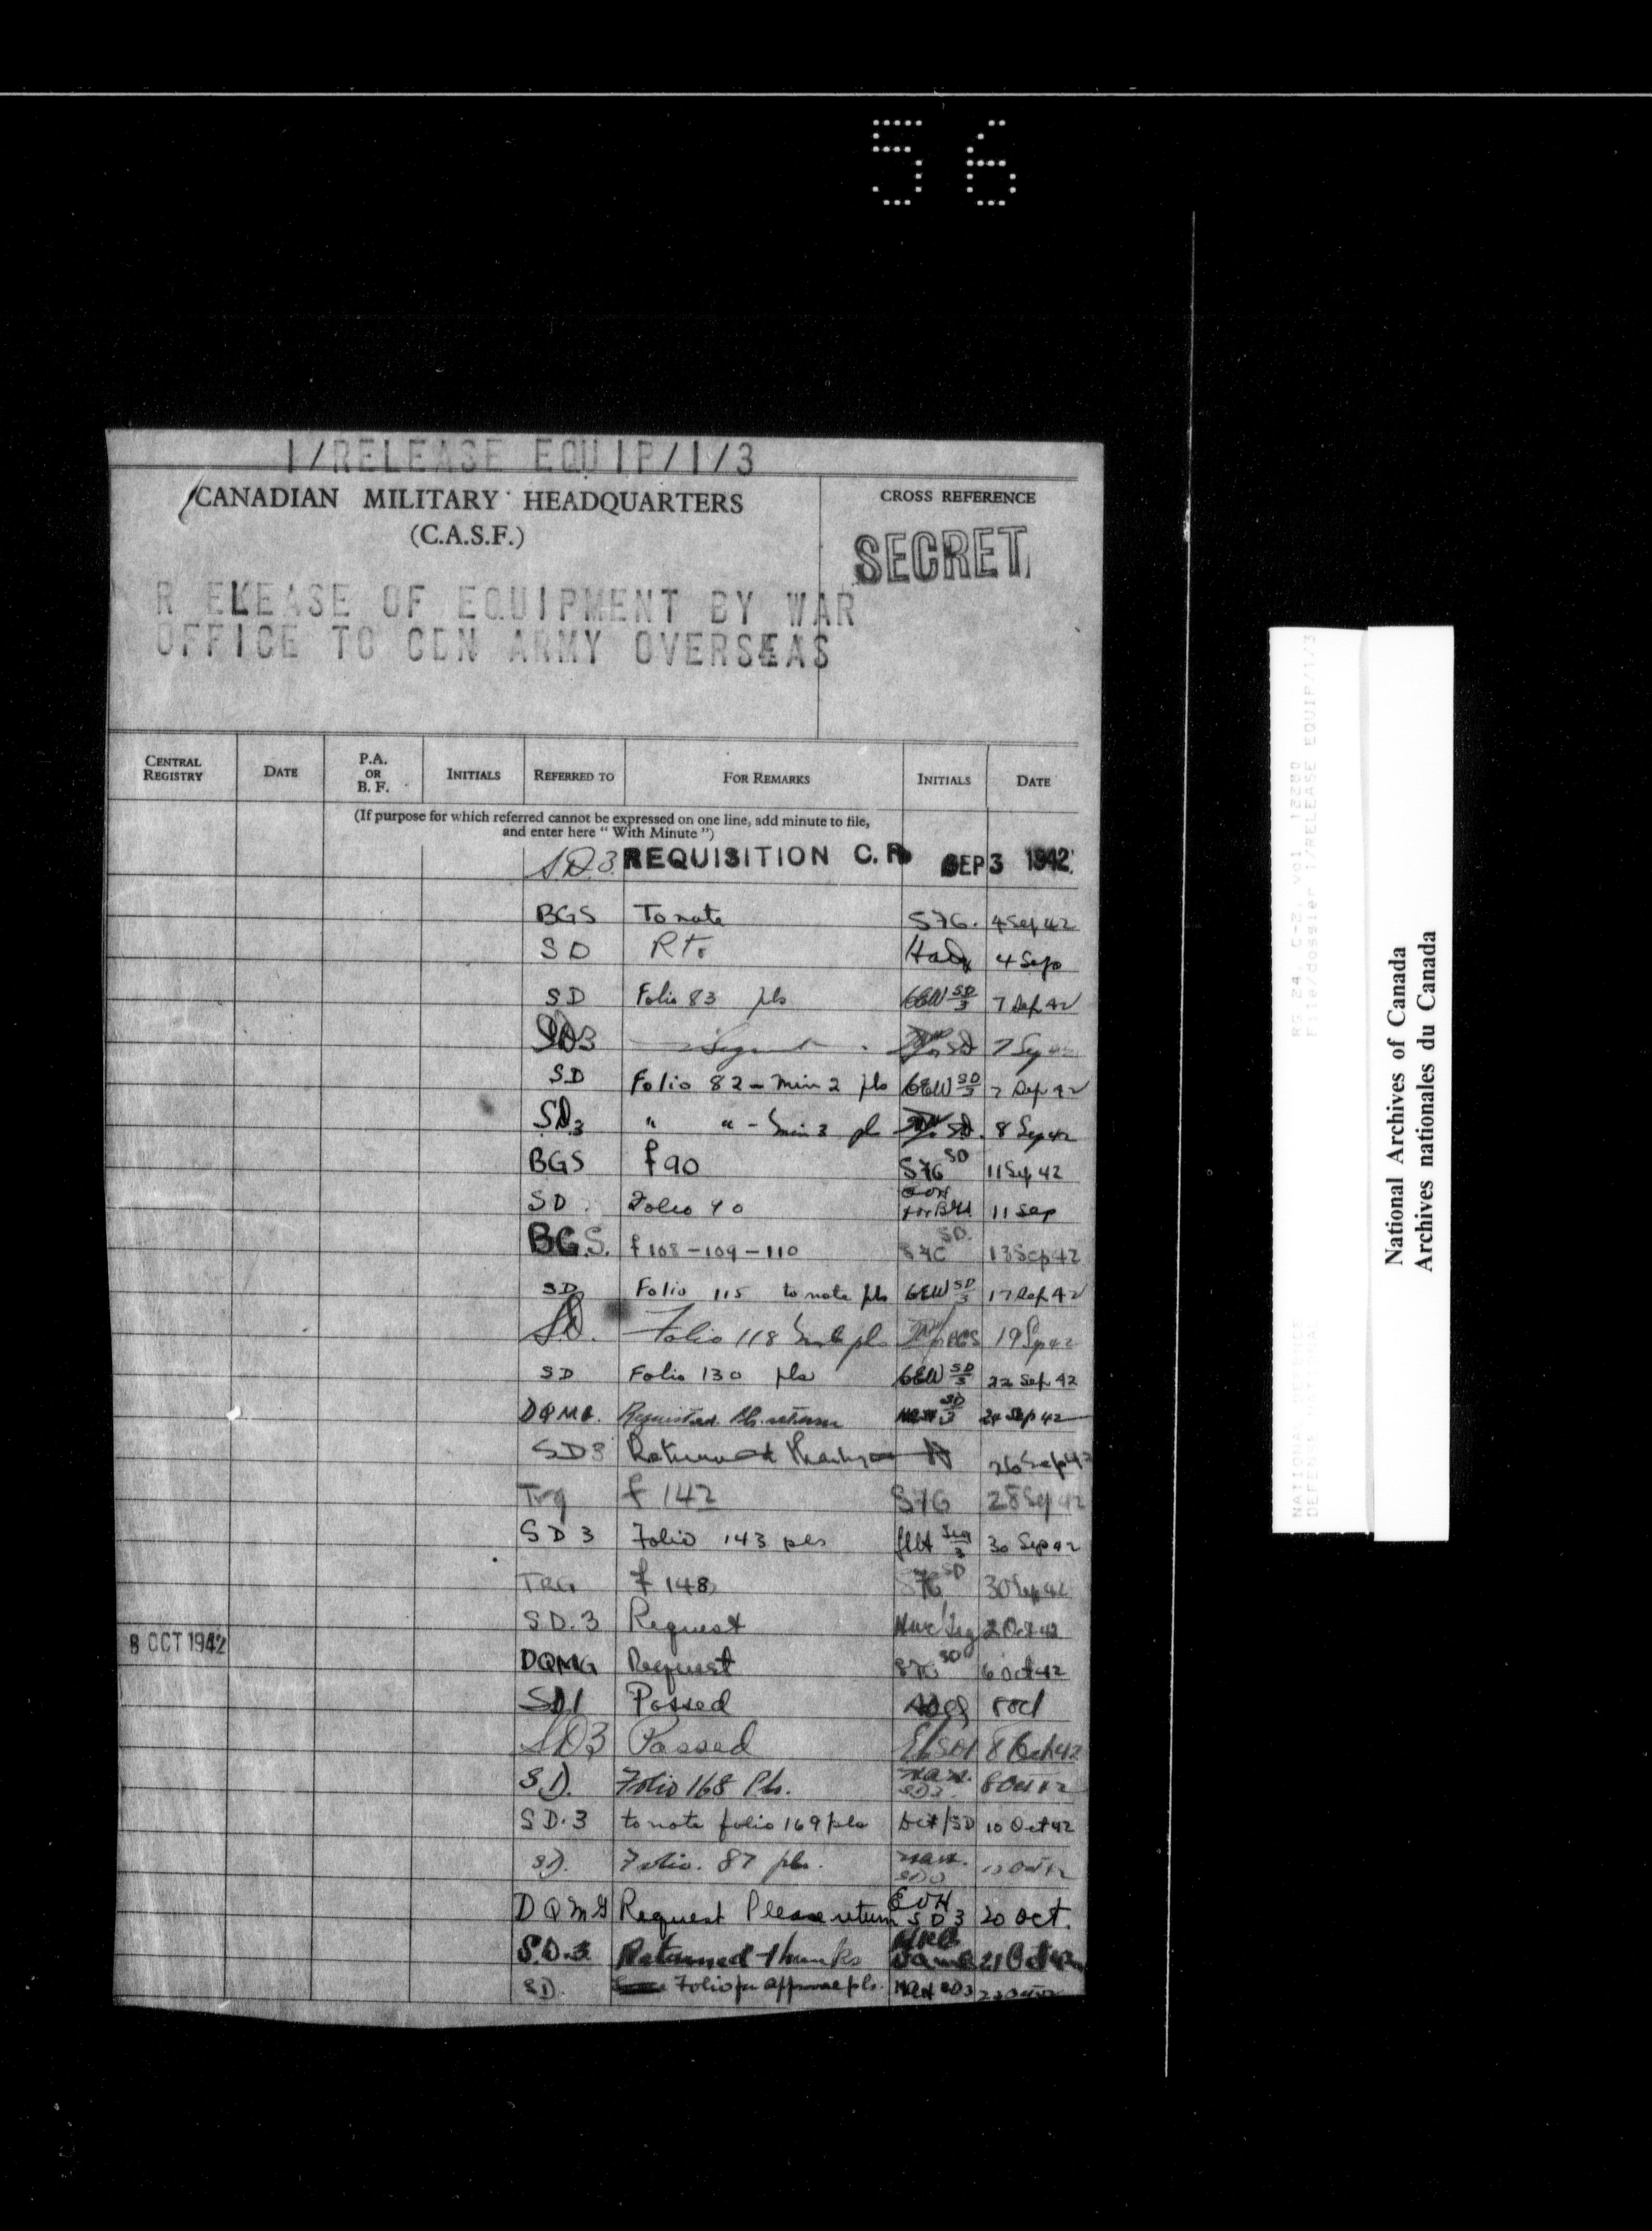 56
1/RELEASE EQUIP/1/3
CANADIAN MILITARY HEADQUARTERS
(C.A.S.F.)
CROSS REFERENCE
SECRET
R ELEASE OF EQUIPMENT BY WAR
OFFICE TO CDN ARMY OVERSEAS
CENTRAL REGISTRY DATE P.A. OR B. F. INITIALS REFERRED TO FOR REMARKS INITIALS DATE
(If purpose for which referred cannot be expressed on one line, add minute to file,
and enter here "With Minute")
SD3 REQUISITION C.R. SEP 3 1942
BGS To note 4 Sep 42
SD 4 Sep
SD Folio 83 pls GEW SD/3 7 Sep 42
SD3 7 Sep
SD Folio 82 - Min 2 pls GEW SD/3 7 Sep 42
SD3 " " - min 3 pls SD. 8 Sep 42
BGS f 90 SD 11 Sep 42
SD. Folio 90 11 Sep
BG.S. f 108-109-110 SD. 13 Sep 42
SD Folio 115 to note pls GEW SD/3 17 Sep 42
SD. Folio 118 pls 19 Sep 42
SD Folio 130 pls GEW SD/3 22 Sep 42
DQMG. pls. return SD/3 24 Sep 42
SD3 Returned 26 Sep 42
Trg f 142 28 Sep 42
SD3 Folio 143 pls 30 Sep 42
TRG f 148 SD 30 Sep 42
SD.3 Request 2 Oct 42
8 OCT 1942
DQMG Request SD 6 Oct 42
SD1 Passed 8 Oct
SD3 Passed 8 Oct 42
SD. Folio 168 Pls. SD3. 8 Oct 42
SD.3 to note folio 169 pls /SD 10 Oct 42
SD. Folio. 87 pls.
DQMG Request Please return EVH SD3 20 Oct.
S.D.3 Returned thanks 21 Oct 42
SD. Folio for approval pls. SD3
RG 24, C-2, vol.
File/dossier 1/RELEASE EQUIP/1/3
NATIONAL DEFENCE
DEFENSE NATIONALE
National Archives of Canada
Archives nationales du Canada